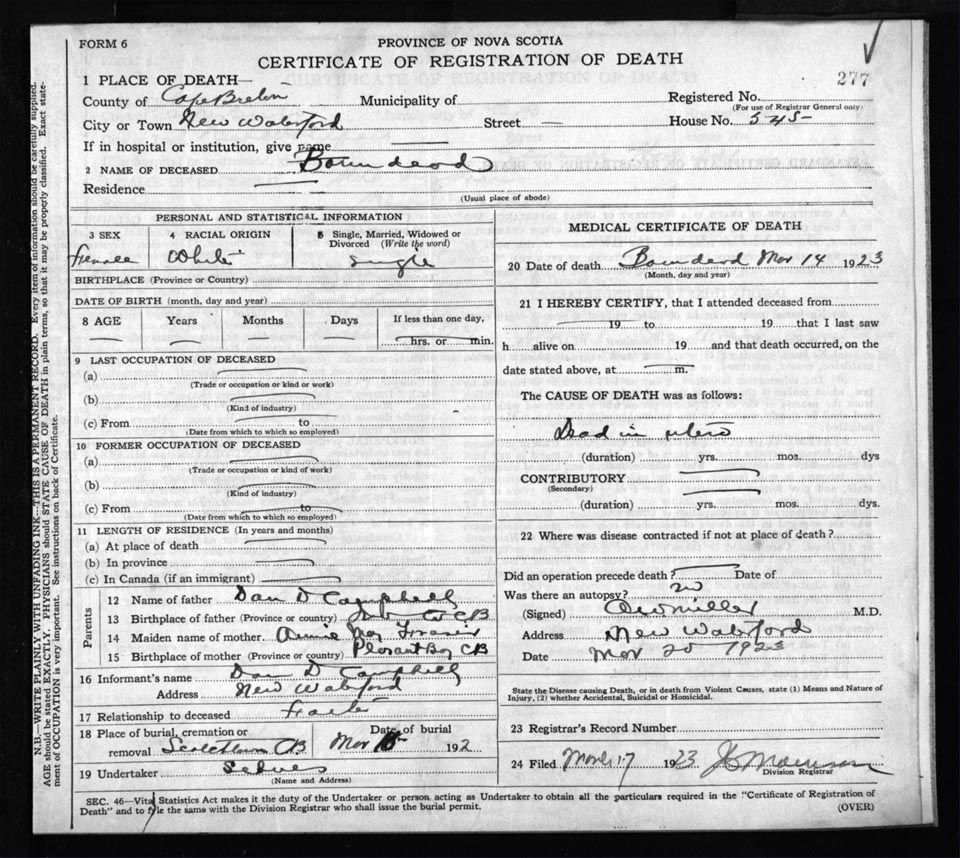 FORM 6
PROVINCE OF NOVA SCOTIA
CERTIFICATE OF REGISTRATION OF DEATH
277
1 PLACE OF DEATH—
County of Cape Breton Municipality of Registered No.
(For use of Registrar General only)
City or Town New Waterford Street — House No. 545
If in hospital or institution, give name
2 NAME OF DECEASED Born dead
Residence
(Usual place of abode)
PERSONAL AND STATISTICAL INFORMATION
3 SEX 4 RACIAL ORIGIN 5 Single, Married, Widowed or Divorced (Write the word)
Female White Single
BIRTHPLACE (Province or Country)
DATE OF BIRTH (month, day and year)
8 AGE Years Months Days If less than one day,
hrs. or min.
9 LAST OCCUPATION OF DECEASED
(a)
(Trade or occupation or kind or work)
(b)
(Kind of industry)
(c) From to
(Date from which to which so employed)
10 FORMER OCCUPATION OF DECEASED
(a)
(Trade or occupation or kind of work)
(b)
(Kind of industry)
(c) From to
(Date from which to which so employed)
11 LENGTH OF RESIDENCE (In years and months)
(a) At place of death
(b) In province
(c) In Canada (if an immigrant)
Parents
12 Name of father Dan D Campbell
13 Birthplace of father (Province or country) CB
14 Maiden name of mother Annie May Fraser
15 Birthplace of mother (Province or country) Plesant Bay CB
16 Informant's name Dan D Campbell
Address New Waterford
17 Relationship to deceased Father
18 Place of burial, cremation or removal Date of burial
Scotchtown CB Mar 15 192
19 Undertaker
(Name and Address)
MEDICAL CERTIFICATE OF DEATH
20 Date of death Born dead Mar 14 1923
(Month, day and year)
21 I HEREBY CERTIFY, that I attended deceased from
19 to 19 that I last saw
h alive on 19 and that death occurred, on the
date stated above, at m.
The CAUSE OF DEATH was as follows:
Dead in utero
(duration) yrs. mos. dys
CONTRIBUTORY
(Secondary)
(duration) yrs. mos. dys.
22 Where was disease contracted if not at place of death?
Did an operation precede death? Date of
Was there an autopsy? no
(Signed) Miller M.D.
Address New Waterford
Date Mar 20 1923
State the Disease causing Death, or in death from Violent Causes, state (1) Means and Nature of
Injury, (2) whether Accidental, Suicidal or Homicidal.
23 Registrar's Record Number
24 Filed March 17 1923
Division Registrar
SEC. 46—Vital Statistics Act makes it the duty of the Undertaker or person acting as Undertaker to obtain all the particulars required in the "Certificate of Registration of
Death" and to file the same with the Division Registrar who shall issue the burial permit. (OVER)
N.B.—WRITE PLAINLY WITH UNFADING INK—THIS IS A PERMANENT RECORD. Every item of information should be carefully supplied.
AGE should be stated EXACTLY. PHYSICIANS should STATE CAUSE OF DEATH in plain terms, so that it may be properly classified. Exact state-
ment of OCCUPATION is very important. See instructions on back of Certificate.